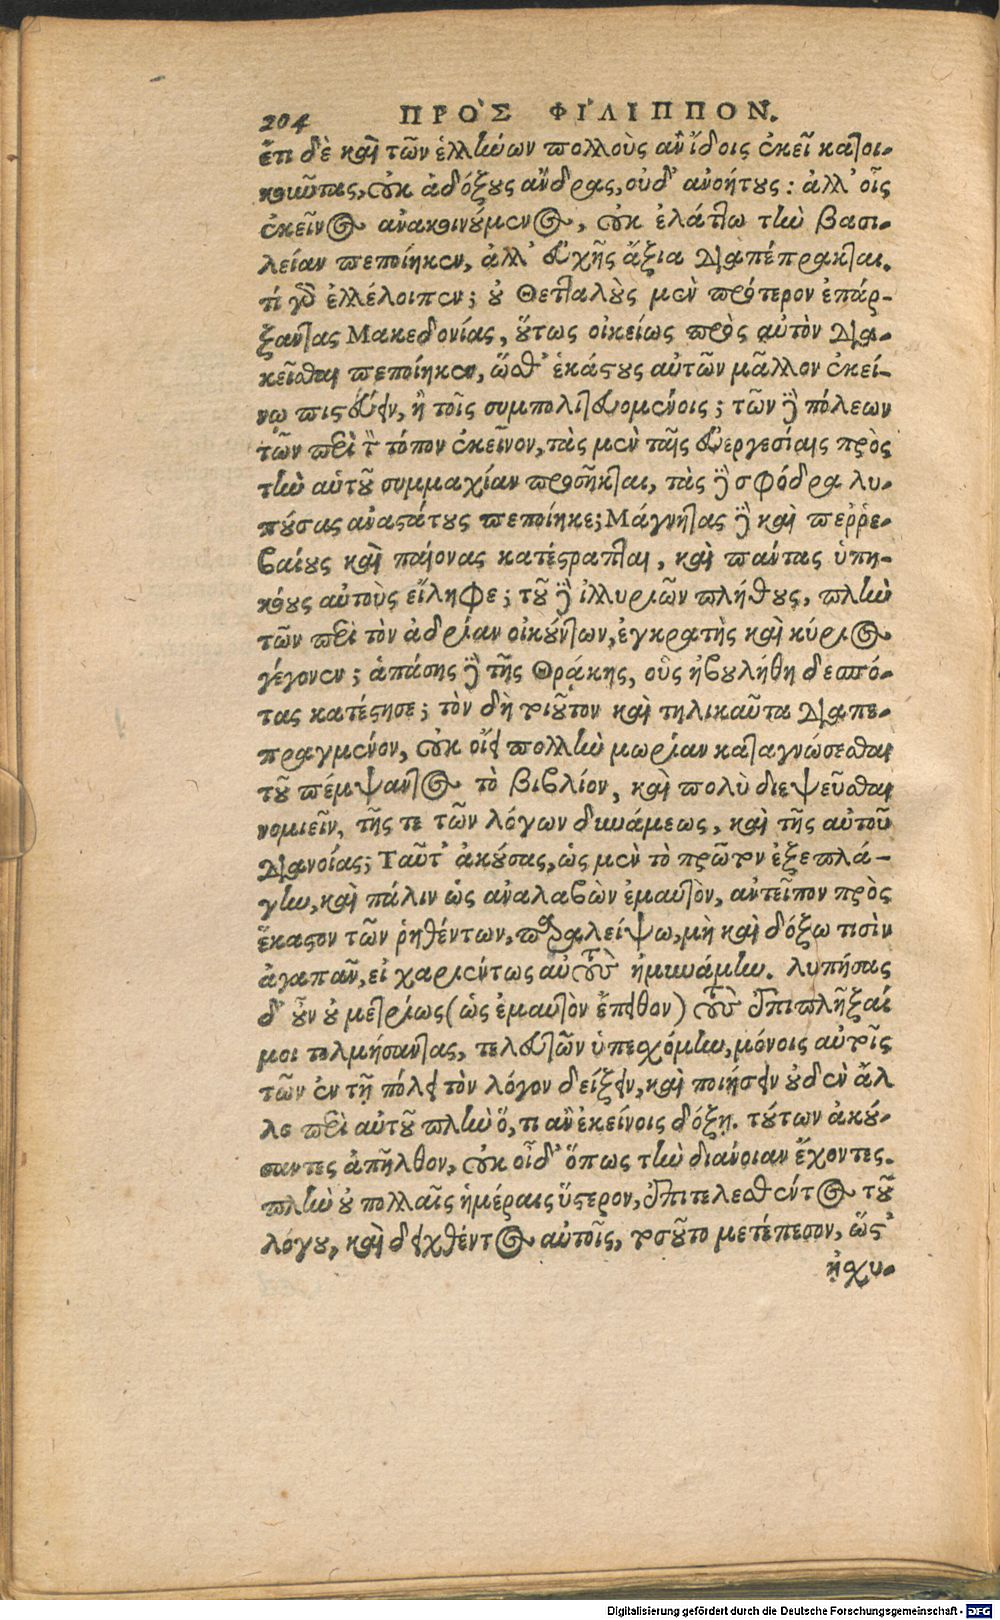 204 ΠΡΟ῍Σ ΦΙ΄ΛΙΠΠΟΝ.
ἔτι δὲ καὶ τῶν ἑλλήνων πολλοὺς ἂν ἴδοις ἐκεῖ κατοι-
κοῦντας, οὐκ ἀδόξους ἄνδρας, οὐδ' ἀνοήτους: ἀλλ' οἷς
ἐκεῖνος ἀνακοινούμενος, οὐκ ἐλάττω τὴν βασι-
λείαν πεποίηκεν, ἀλλ' εὐχῆς ἄξια διαπέπρακται.
τί γὰρ ἐλλέλοιπεν; οὐ Θετταλοὺς μὲν πρότερον ἐπάρ-
ξαντας Μακεδονίας, οὕτως οἰκείως πρὸς αὐτὸν δια-
κεῖσθαι πεποίηκεν, ὥσθ' ἑκάστους αὐτῶν μᾶλλον ἐκεί-
νῳ πιστεύειν, ἢ τοῖς συμπολιτευομένοις; τῶν δὲ πόλεων
τῶν περὶ τὸν τόπον ἐκεῖνον, τὰς μὲν ταῖς εὐεργεσίαις πρὸς
τὴν αὑτοῦ συμμαχίαν προσῆκται, τὰς δὲ σφόδρα λυ-
πούσας ἀναστάτους πεποίηκε; Μάγνητας δὲ καὶ περῤῥε-
βαίους καὶ παίονας κατέστραπται, καὶ πάντας ὑπη-
κόους αὐτοὺς εἴληφε; τοῦ δὲ ἰλλυριῶν πλήθους, πλὴν
τῶν περὶ τὸν ἀδρίαν οἰκούντων, ἐγκρατὴς καὶ κύριος
γέγονεν; ἁπάσης δὲ τῆς Θράκης, οὓς ἠβουλήθη δεσπό-
τας κατέστησε; τὸν δὴ τοιοῦτον καὶ τηλικαῦτα διαπε-
πραγμένον, οὐκ οἴει πολλὴν μωρίαν καταγνώσεσθαι
τοῦ πέμψαντος τὸ βιβλίον, καὶ πολὺ διεψεῦσθαι
νομιεῖν, τῆς τε τῶν λόγων δυνάμεως, καὶ τῆς αὑτοῦ
διανοίας; Ταῦτ' ἀκούσας, ὡς μὲν τὸ πρῶτον ἐξεπλά-
γην, καὶ πάλιν ὡς ἀναλαβὼν ἐμαυτὸν, ἀντεῖπον πρὸς
ἕκαστον τῶν ῥηθέντων, παραλείψω, μὴ καὶ δόξω τισὶν
ἀγαπᾶν, εἰ χαριέντως αὐτοὺς ἠμυνάμην. λυπήσας
δ' οὖν οὐ μετρίως (ὡς ἐμαυτὸν ἔπειθον) τοὺς ἐπιπλῆξαί
μοι τολμήσαντας, τελευτῶν ὑπεσχόμην, μόνοις αὐτοῖς
τῶν ἐν τῇ πόλει τὸν λόγον δείξειν, καὶ ποιήσειν οὐδὲν ἄλ
λο περὶ αὐτοῦ πλὴν ὅ, τι ἂν ἐκείνοις δόξῃ. τούτων ἀκού-
σαντες ἀπῆλθον, οὐκ οἶδ' ὅπως τὴν διάνοιαν ἔχοντες.
πλὴν οὐ πολλαῖς ἡμέραις ὕστερον, ἐπιτελεσθέντος τοῦ
λόγου, καὶ δειχθέντος αὐτοῖς, τοσοῦτο μετέπεσον, ὥστ'
ᾐσχυ-
Digitalisierung gefördert durch die Deutsche Forschungsgemeinschaft - DFG